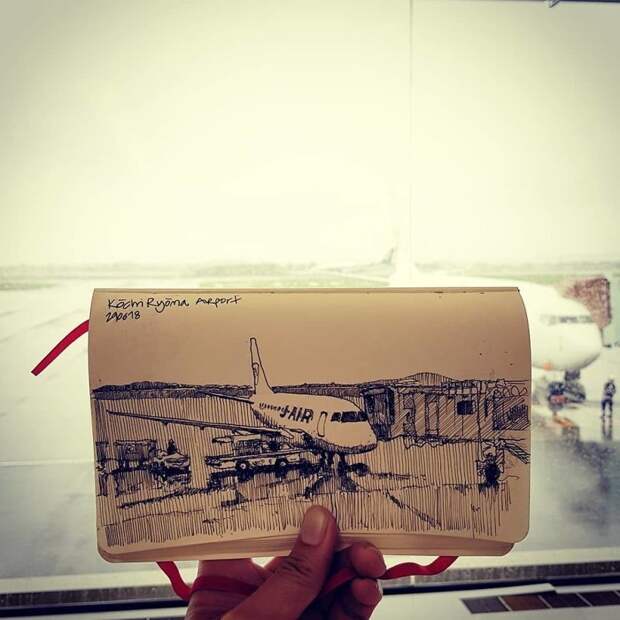 Kōchi Ryōma Airport
290618
J-AIR